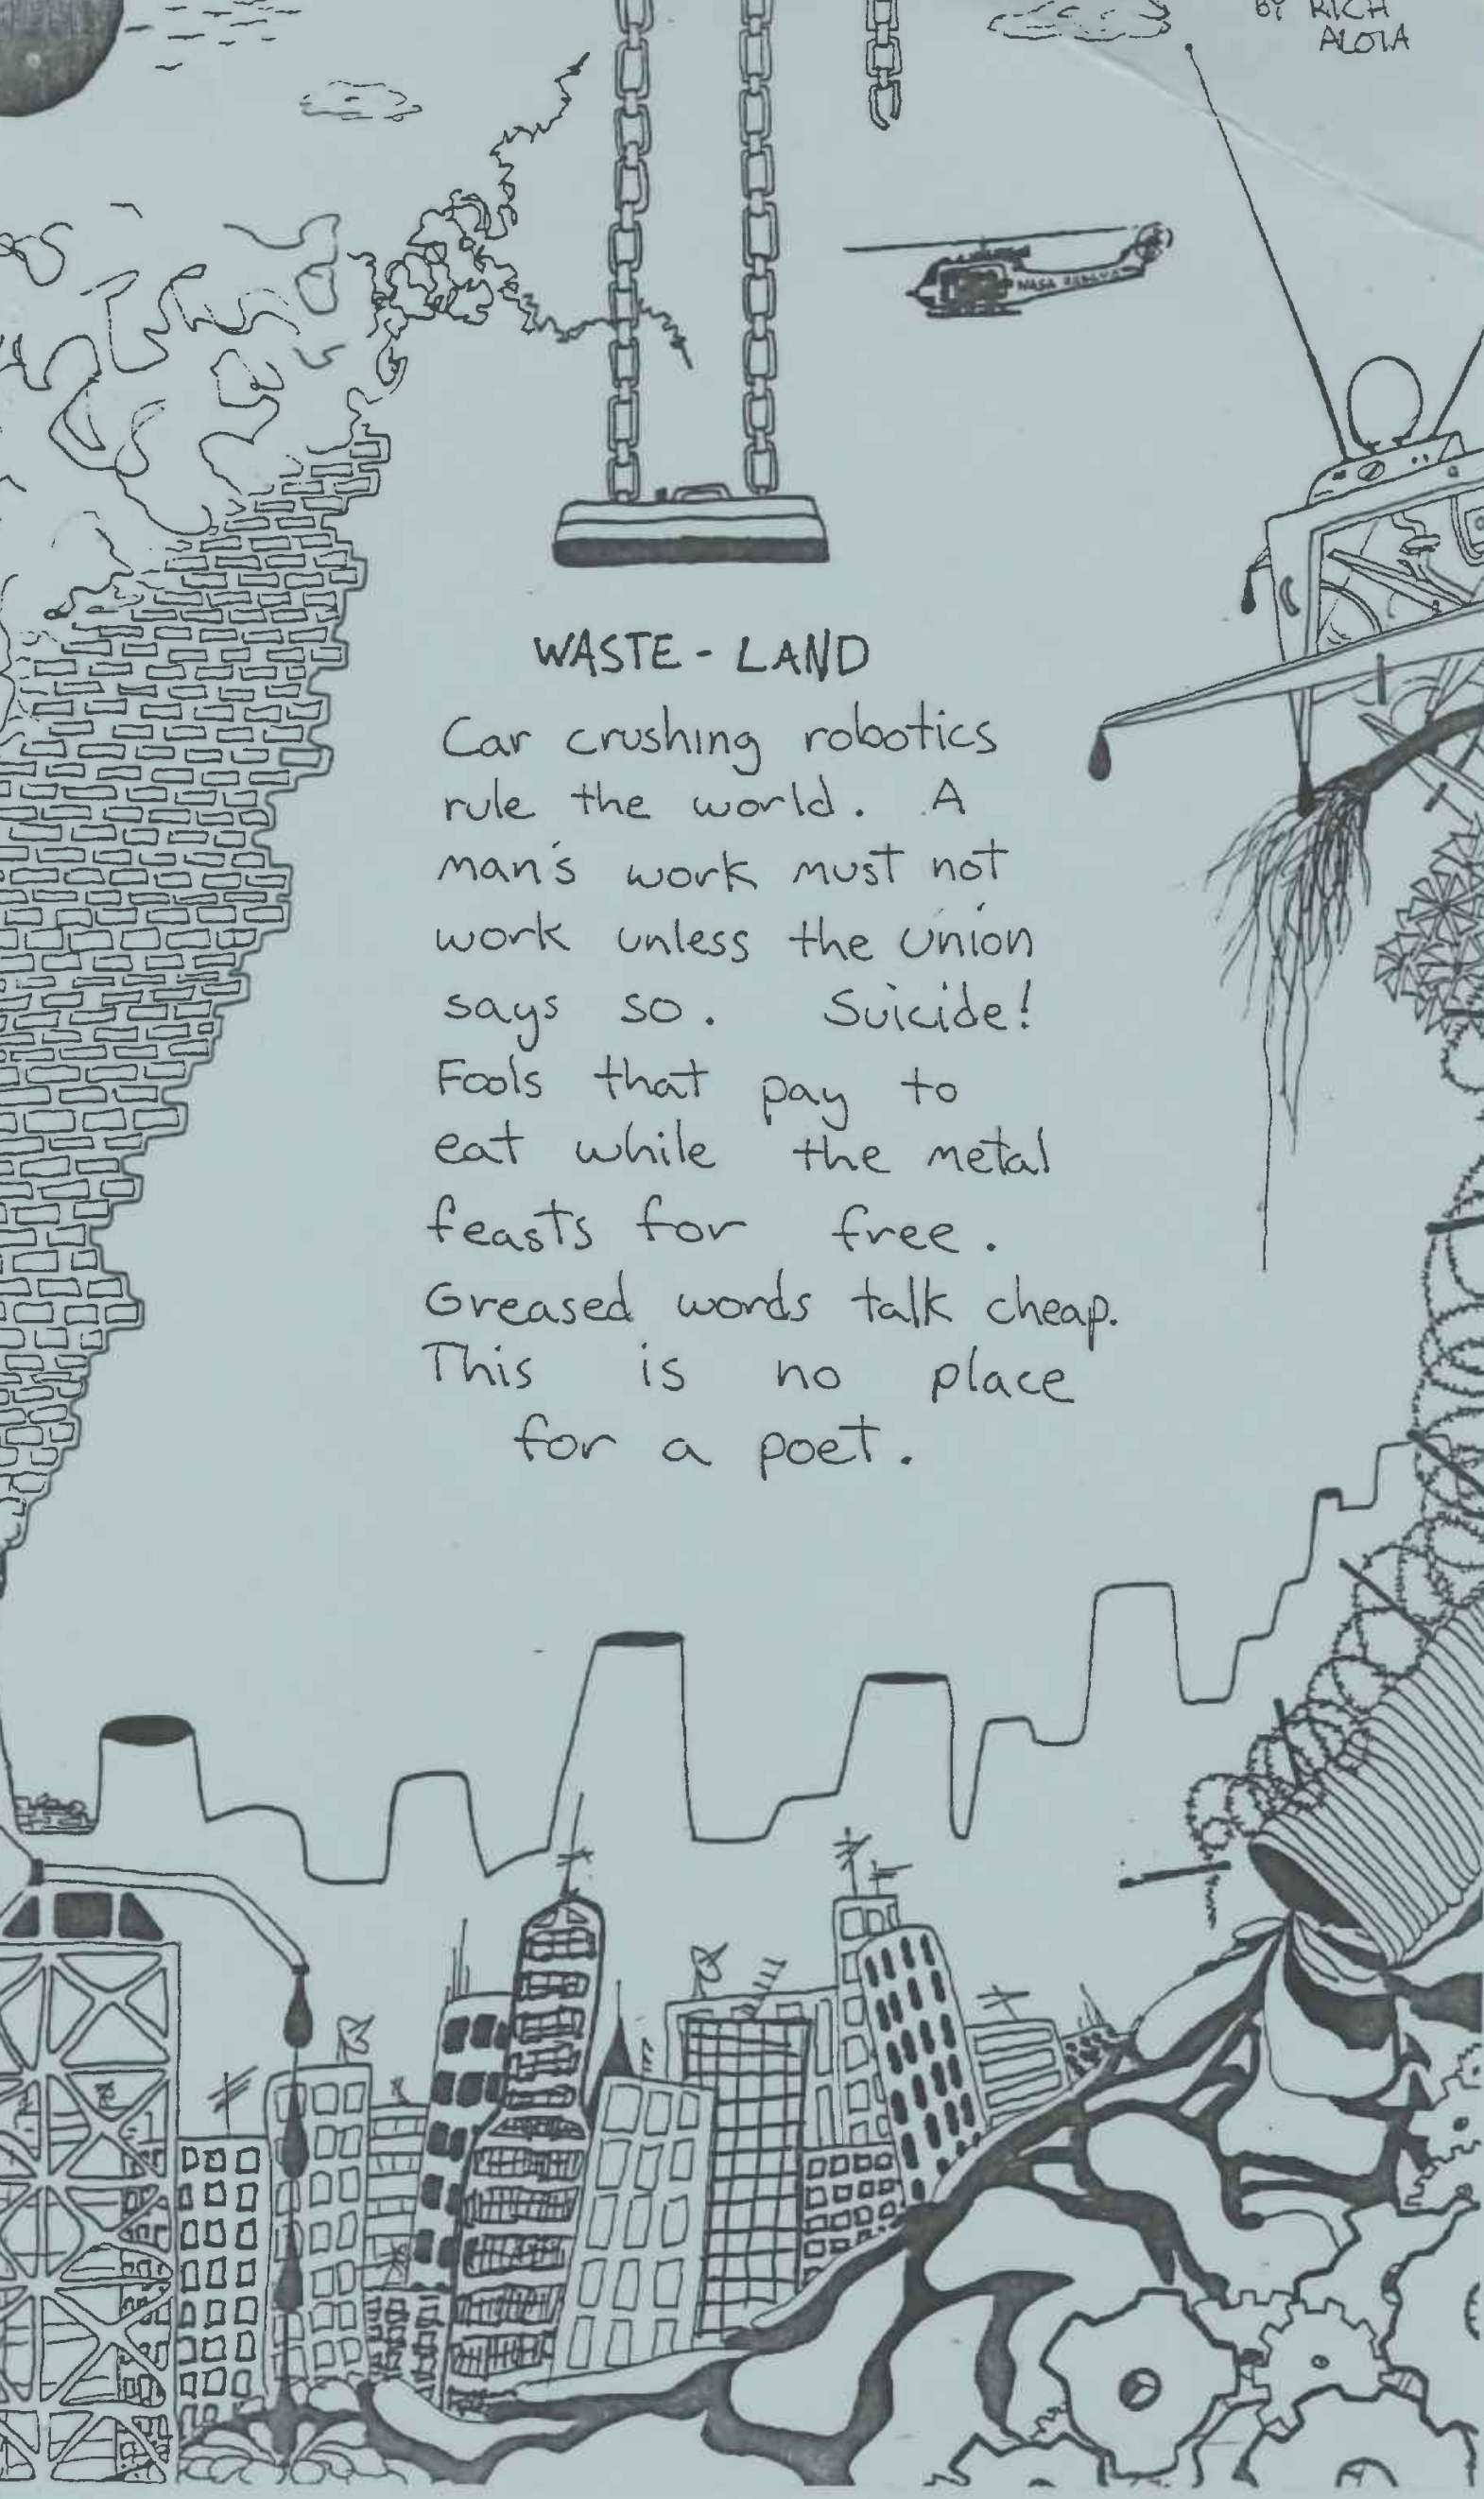 BY RICH
ALOIA
NASA
WASTE - LAND
Car crushing robotics
rule the world. A
man's work must not
work unless the union
says so. Suicide!
Fools that pay to
eat while the metal
feasts for free.
Greased words talk cheap.
This is no place
for a poet.